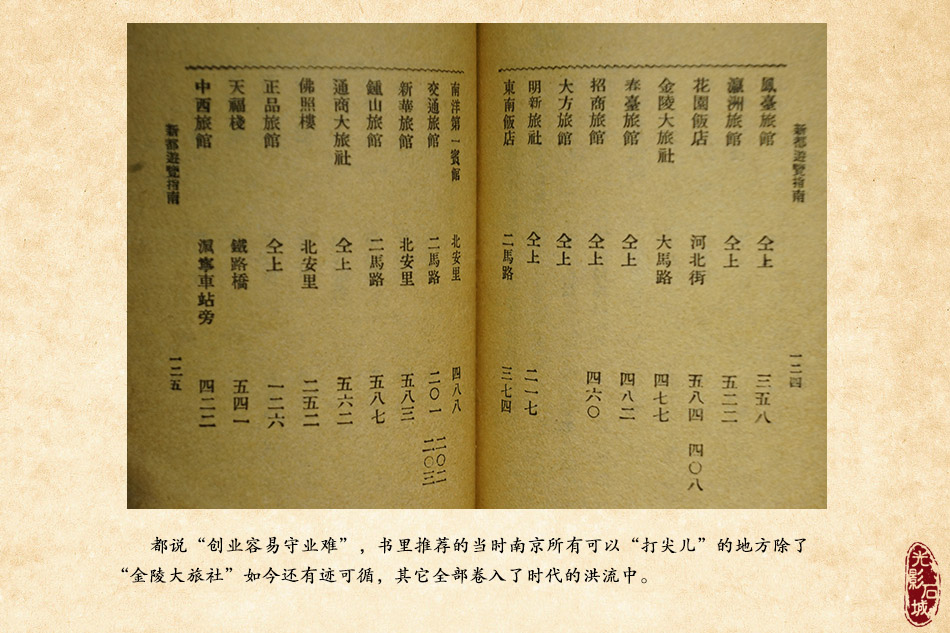 新都遊覽指南 一二四
鳳臺旅館 仝上 三五八
瀛洲旅館 仝上 五二二
花園飯店 河北街 五八四 四〇八
金陵大旅社 大馬路 四七七
春臺旅館 仝上 四八二
招商旅館 仝上 四六〇
大方旅館 仝上
明新旅社 仝上 二一七
東南飯店 二馬路 三七四
南洋第一賓館 北安里 四八八
交通旅館 二馬路 二〇一 二〇二 二〇三
新華旅館 北安里 五八三
鍾山旅館 二馬路 五八七
通商大旅社 仝上 五六二
佛照樓 北安里 二五二
正品旅館 仝上 一二六
天福棧 鐵路橋 五四一
中西旅館 滬寧車站旁 四二二
新都遊覽指南 一二五
都说“创业容易守业难”，书里推荐的当时南京所有可以“打尖儿”的地方除了
“金陵大旅社”如今还有迹可循，其它全部卷入了时代的洪流中。
光影石城